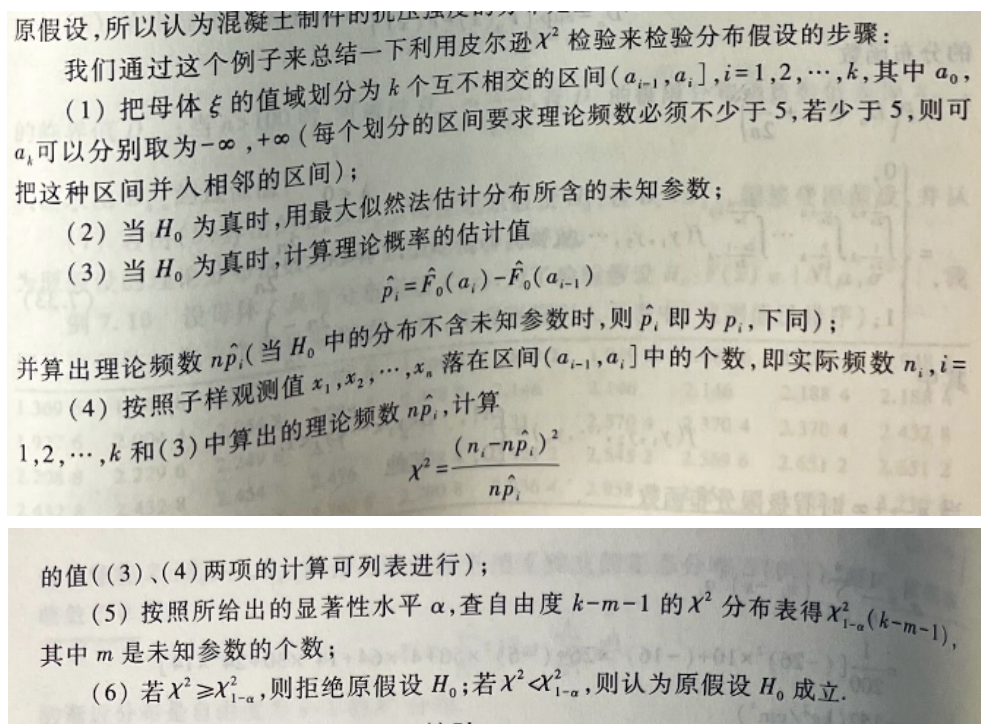 原假设,所以认为混凝土制件的抗压强度的分布是
我们通过这个例子来总结一下利用皮尔逊χ² 检验来检验分布假设的步骤:
(1) 把母体 ξ 的值域划分为 k 个互不相交的区间(aᵢ₋₁,aᵢ],i=1,2,…,k,其中 a₀,
aₖ可以分别取为-∞,+∞(每个划分的区间要求理论频数必须不少于 5,若少于 5,则可
把这种区间并入相邻的区间);
(2) 当 H₀ 为真时,用最大似然法估计分布所含的未知参数;
(3) 当 H₀ 为真时,计算理论概率的估计值
p̂ᵢ=F̂₀(aᵢ)-F̂₀(aᵢ₋₁)
并算出理论频数 np̂ᵢ(当 H₀ 中的分布不含未知参数时,则 p̂ᵢ 即为 pᵢ,下同);
(4) 按照子样观测值 x₁,x₂,…,xₙ 落在区间(aᵢ₋₁,aᵢ]中的个数,即实际频数 nᵢ,i=
1,2,…,k 和(3)中算出的理论频数 np̂ᵢ,计算
χ²=(nᵢ-np̂ᵢ)²/np̂ᵢ
的值((3)、(4)两项的计算可列表进行);
(5) 按照所给出的显著性水平 α,查自由度 k-m-1 的χ² 分布表得χ²₁₋α(k-m-1),
其中 m 是未知参数的个数;
(6) 若χ²≥χ²₁₋α,则拒绝原假设 H₀;若χ²<χ²₁₋α,则认为原假设 H₀ 成立.